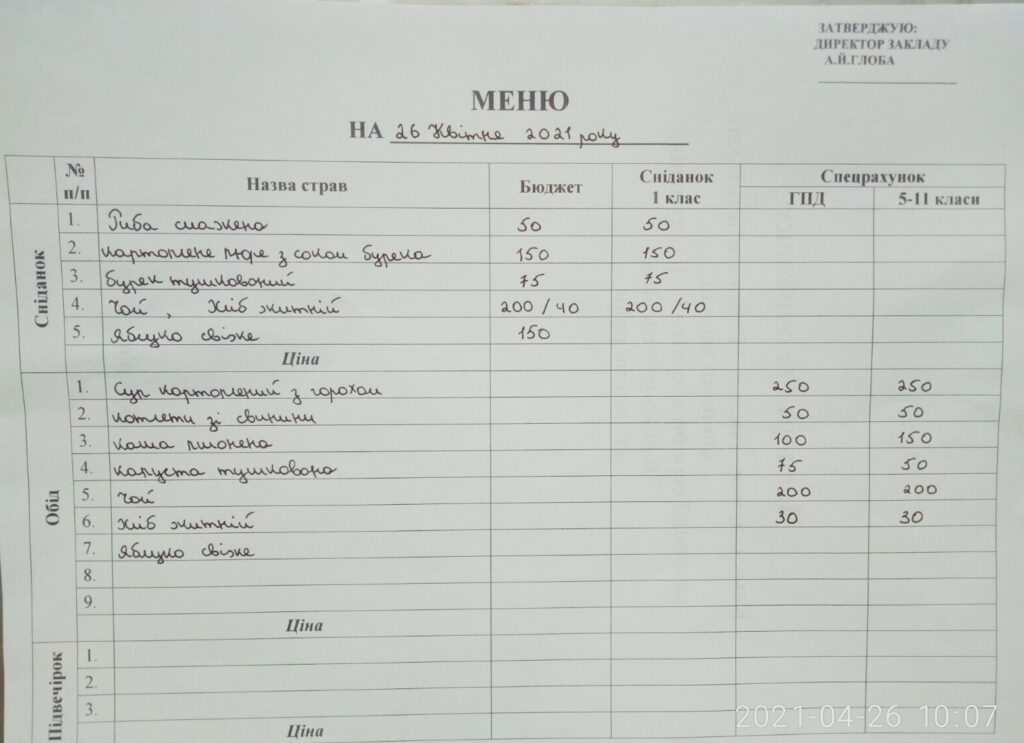 ЗАТВЕРДЖУЮ:
ДИРЕКТОР ЗАКЛАДУ
А.Й.ГЛОБА
МЕНЮ
НА 26 Квітня 2021 року
№ п/п Назва страв Бюджет Сніданок 1 клас Спецрахунок
ГПД 5-11 класи
Сніданок
1. Риба смажена 50 50
2. Картопляне пюре з соком буряка 150 150
3. Буряк тушкований 75 75
4. Чай , Хліб житній 200 / 40 200 / 40
5. Яблуко свіже 150
Ціна
Обід
1. Суп картопляний з горохом 250 250
2. Котлети зі свинини 50 50
3. Каша пшоняна 100 150
4. Капуста тушкована 75 50
5. Чай 200 200
6. Хліб житній 30 30
7. Яблуко свіже
8.
9.
Ціна
Підвечірок
1.
2.
3.
Ціна
2021-04-26 10:07